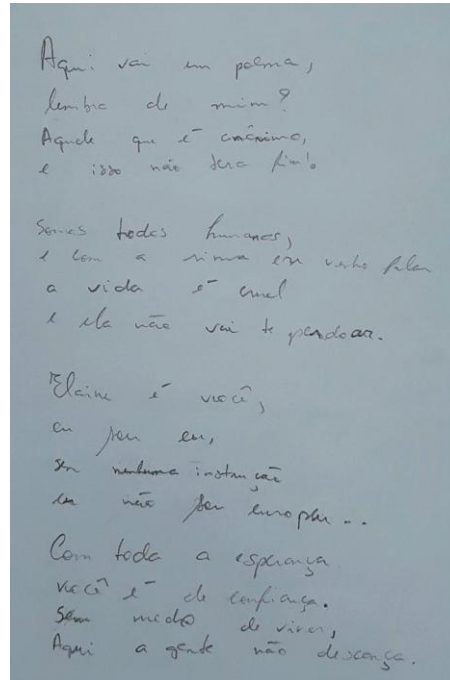 Aqui vai um poema,
lembra de mim?
Aquele que é anônimo,
e isso não terá fim!
Somos todos humanos,
e com a rima eu venho falar
a vida é cruel
e ela não vai te perdoar.
Elaine é você,
eu sou eu,
sem nenhuma instrução
eu não sou europeu...
Com toda a esperança
você é de confiança.
Sem medo de viver,
Aqui a gente não descança.